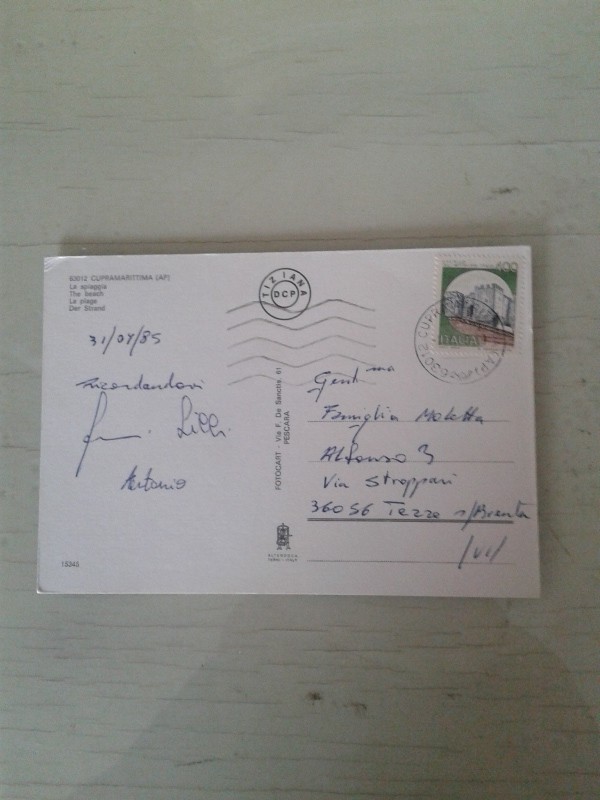 63012 CUPRAMARITTIMA (AP)
La spiaggia
The beach
La plage
Der Strand
TIZIANA
DCP
400
ITALIA
63012 CUPRA
31/07/85
Ricordandovi
Lilli
Antonio
FOTOCART - Via F. De Sanctis, 61
PESCARA
Gent.ma
Famiglia Moletta
Alfonso
Via Stroppari
36056 Tezze s/Brenta
/VI/
15345